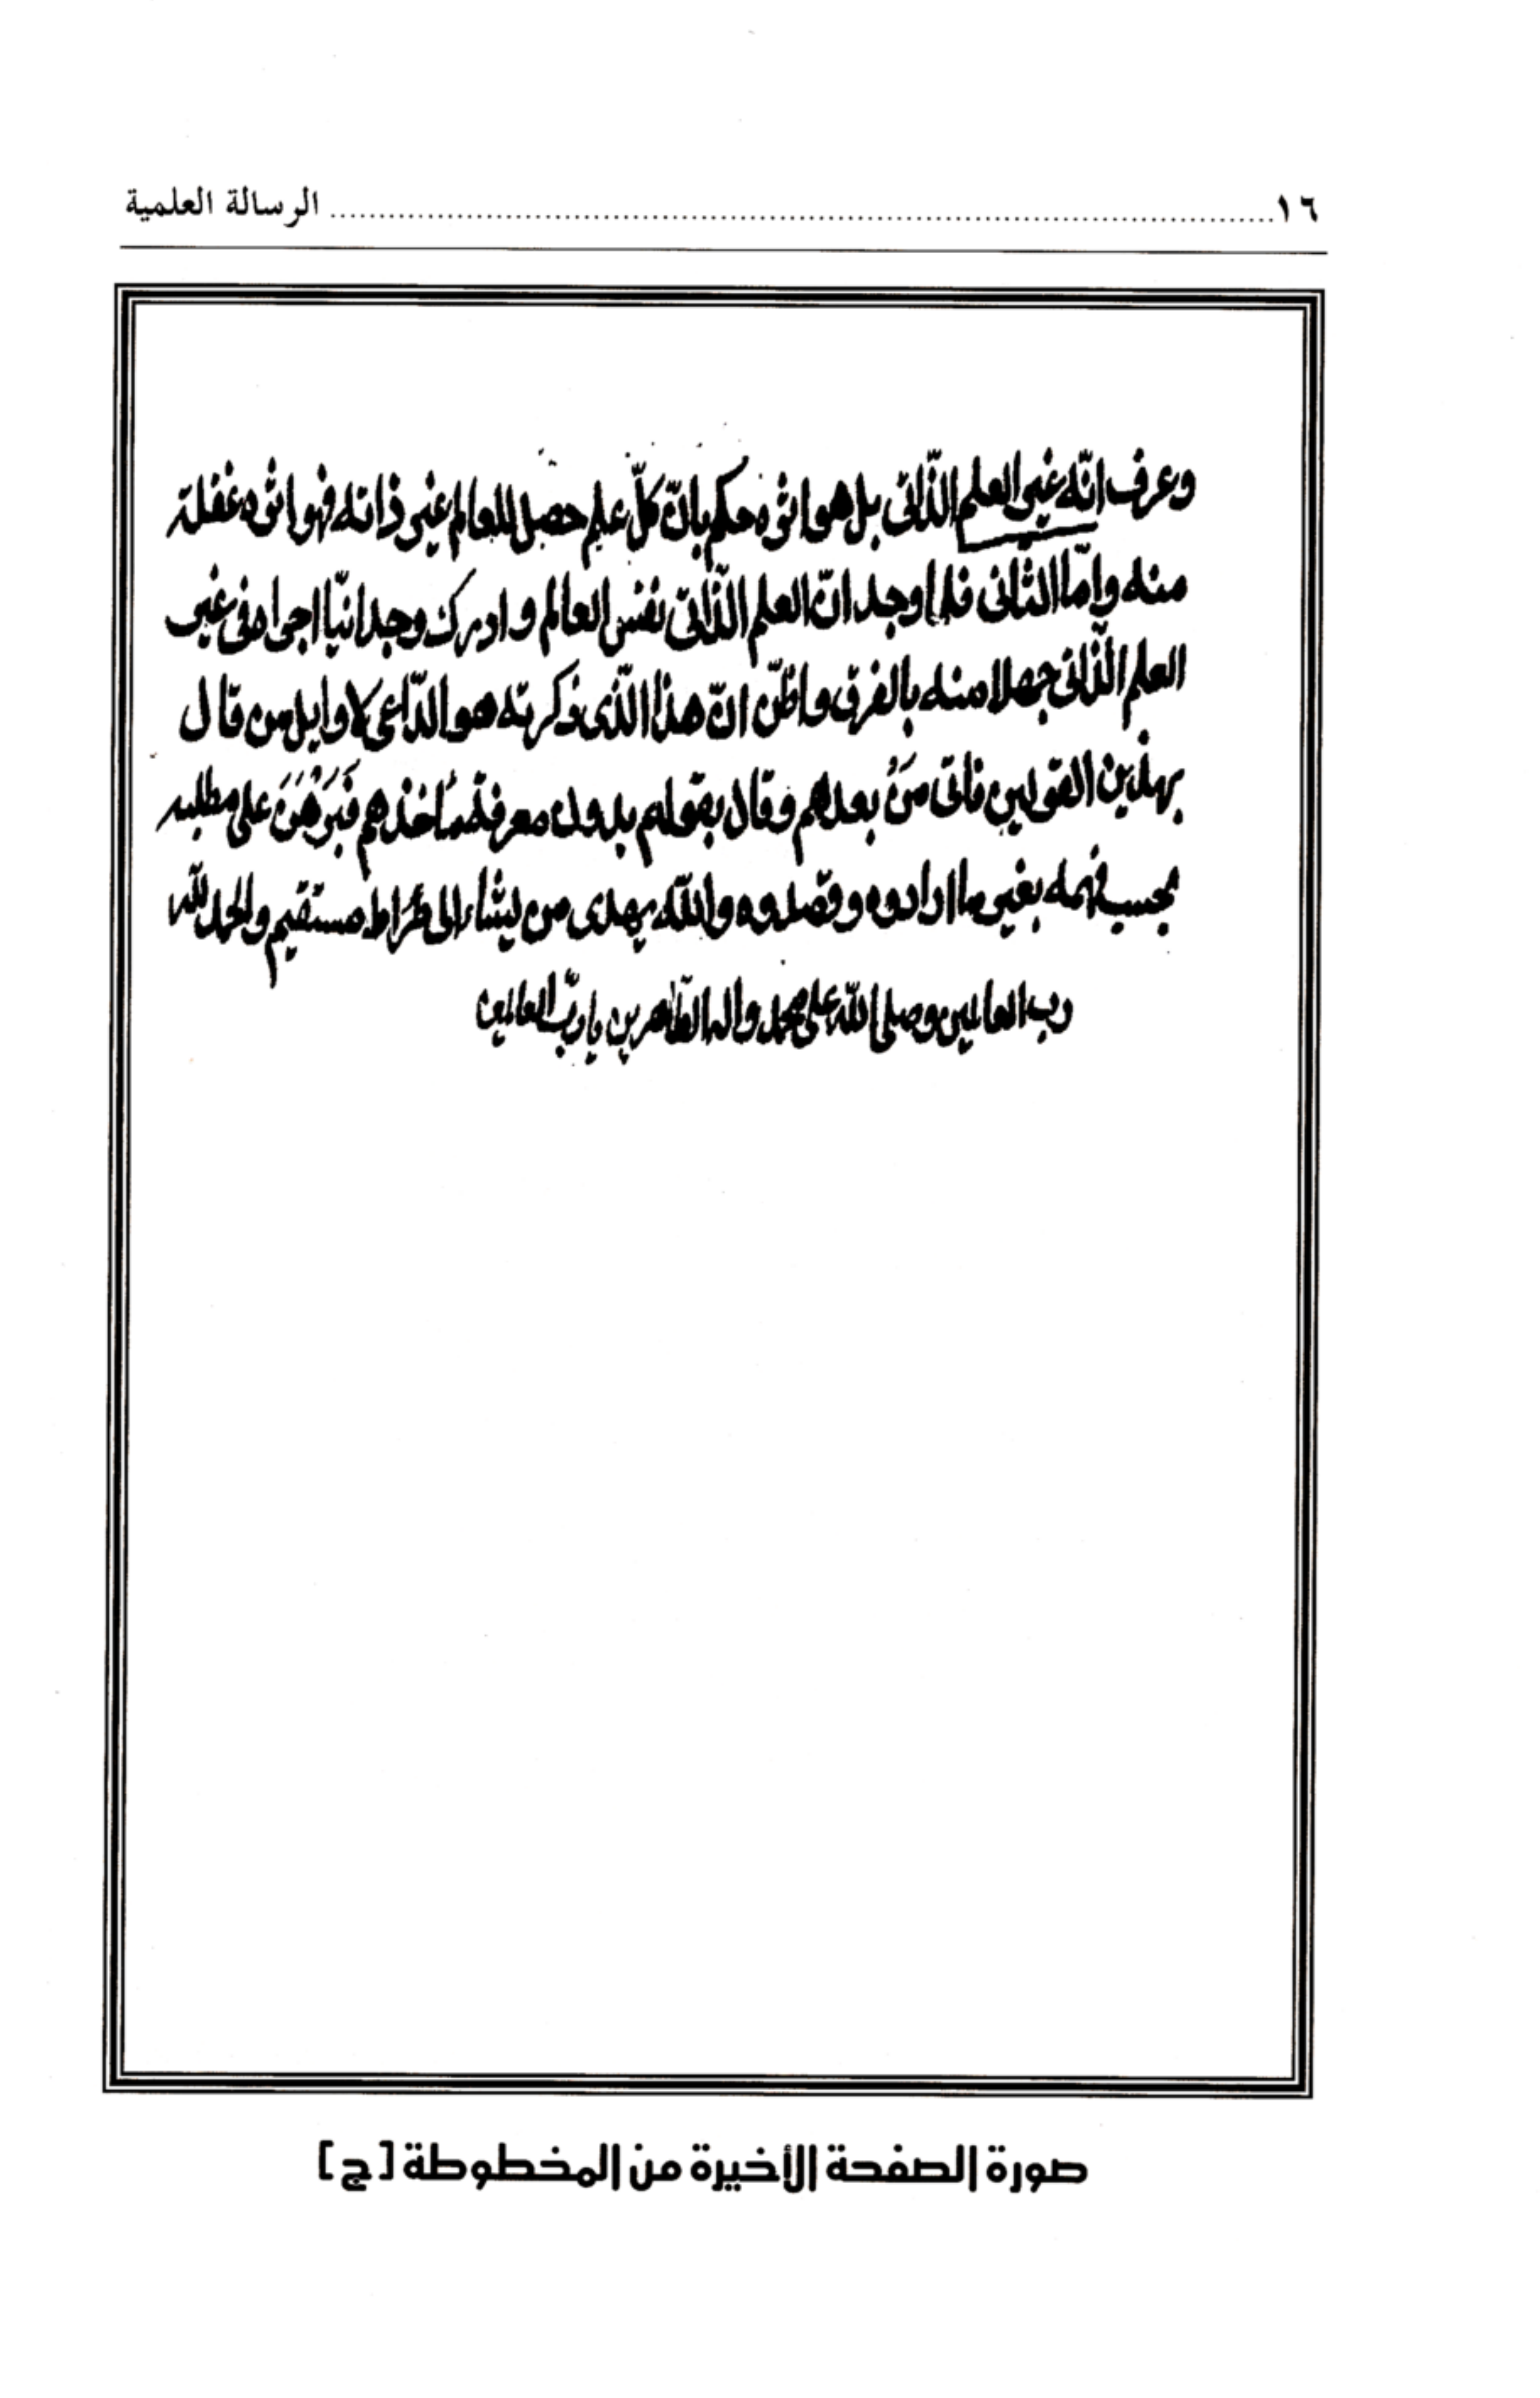 ١٦ ........................................................................ الرسالة العلمية
وعرف انّه غير العلم الذّاتى بل هو اثره حكم بانّ كلّ علم حصل للعالم غير ذاته فهو اثره غفلة
منه وامّا الثانى فلما وجد انّ العلم الذّاتى نفس العالم و ادرك وجدانيّا اجراه فى غير
العلم الذّاتى جهلا منه بالفرق واظنّ انّ هذا الّذى ذكرته هو الدّاعى لاوايل من قال
بهذين القولين فاتى مَنْ بعدهم وقال بقولهم بدون معرفة مَأخذهم فَبَرْهَنَ على مطلبه
بحسب فهمه بغير ما ارادوه وقصدوه والله يهدى من يشاء الى صراط مستقيم والحمد للّه
رب العالمين وصلى اللّه على محمد واله الطّاهرين يا ربّ العالمين
صورة الصفحة الأخيرة من المخطوطة [ج]